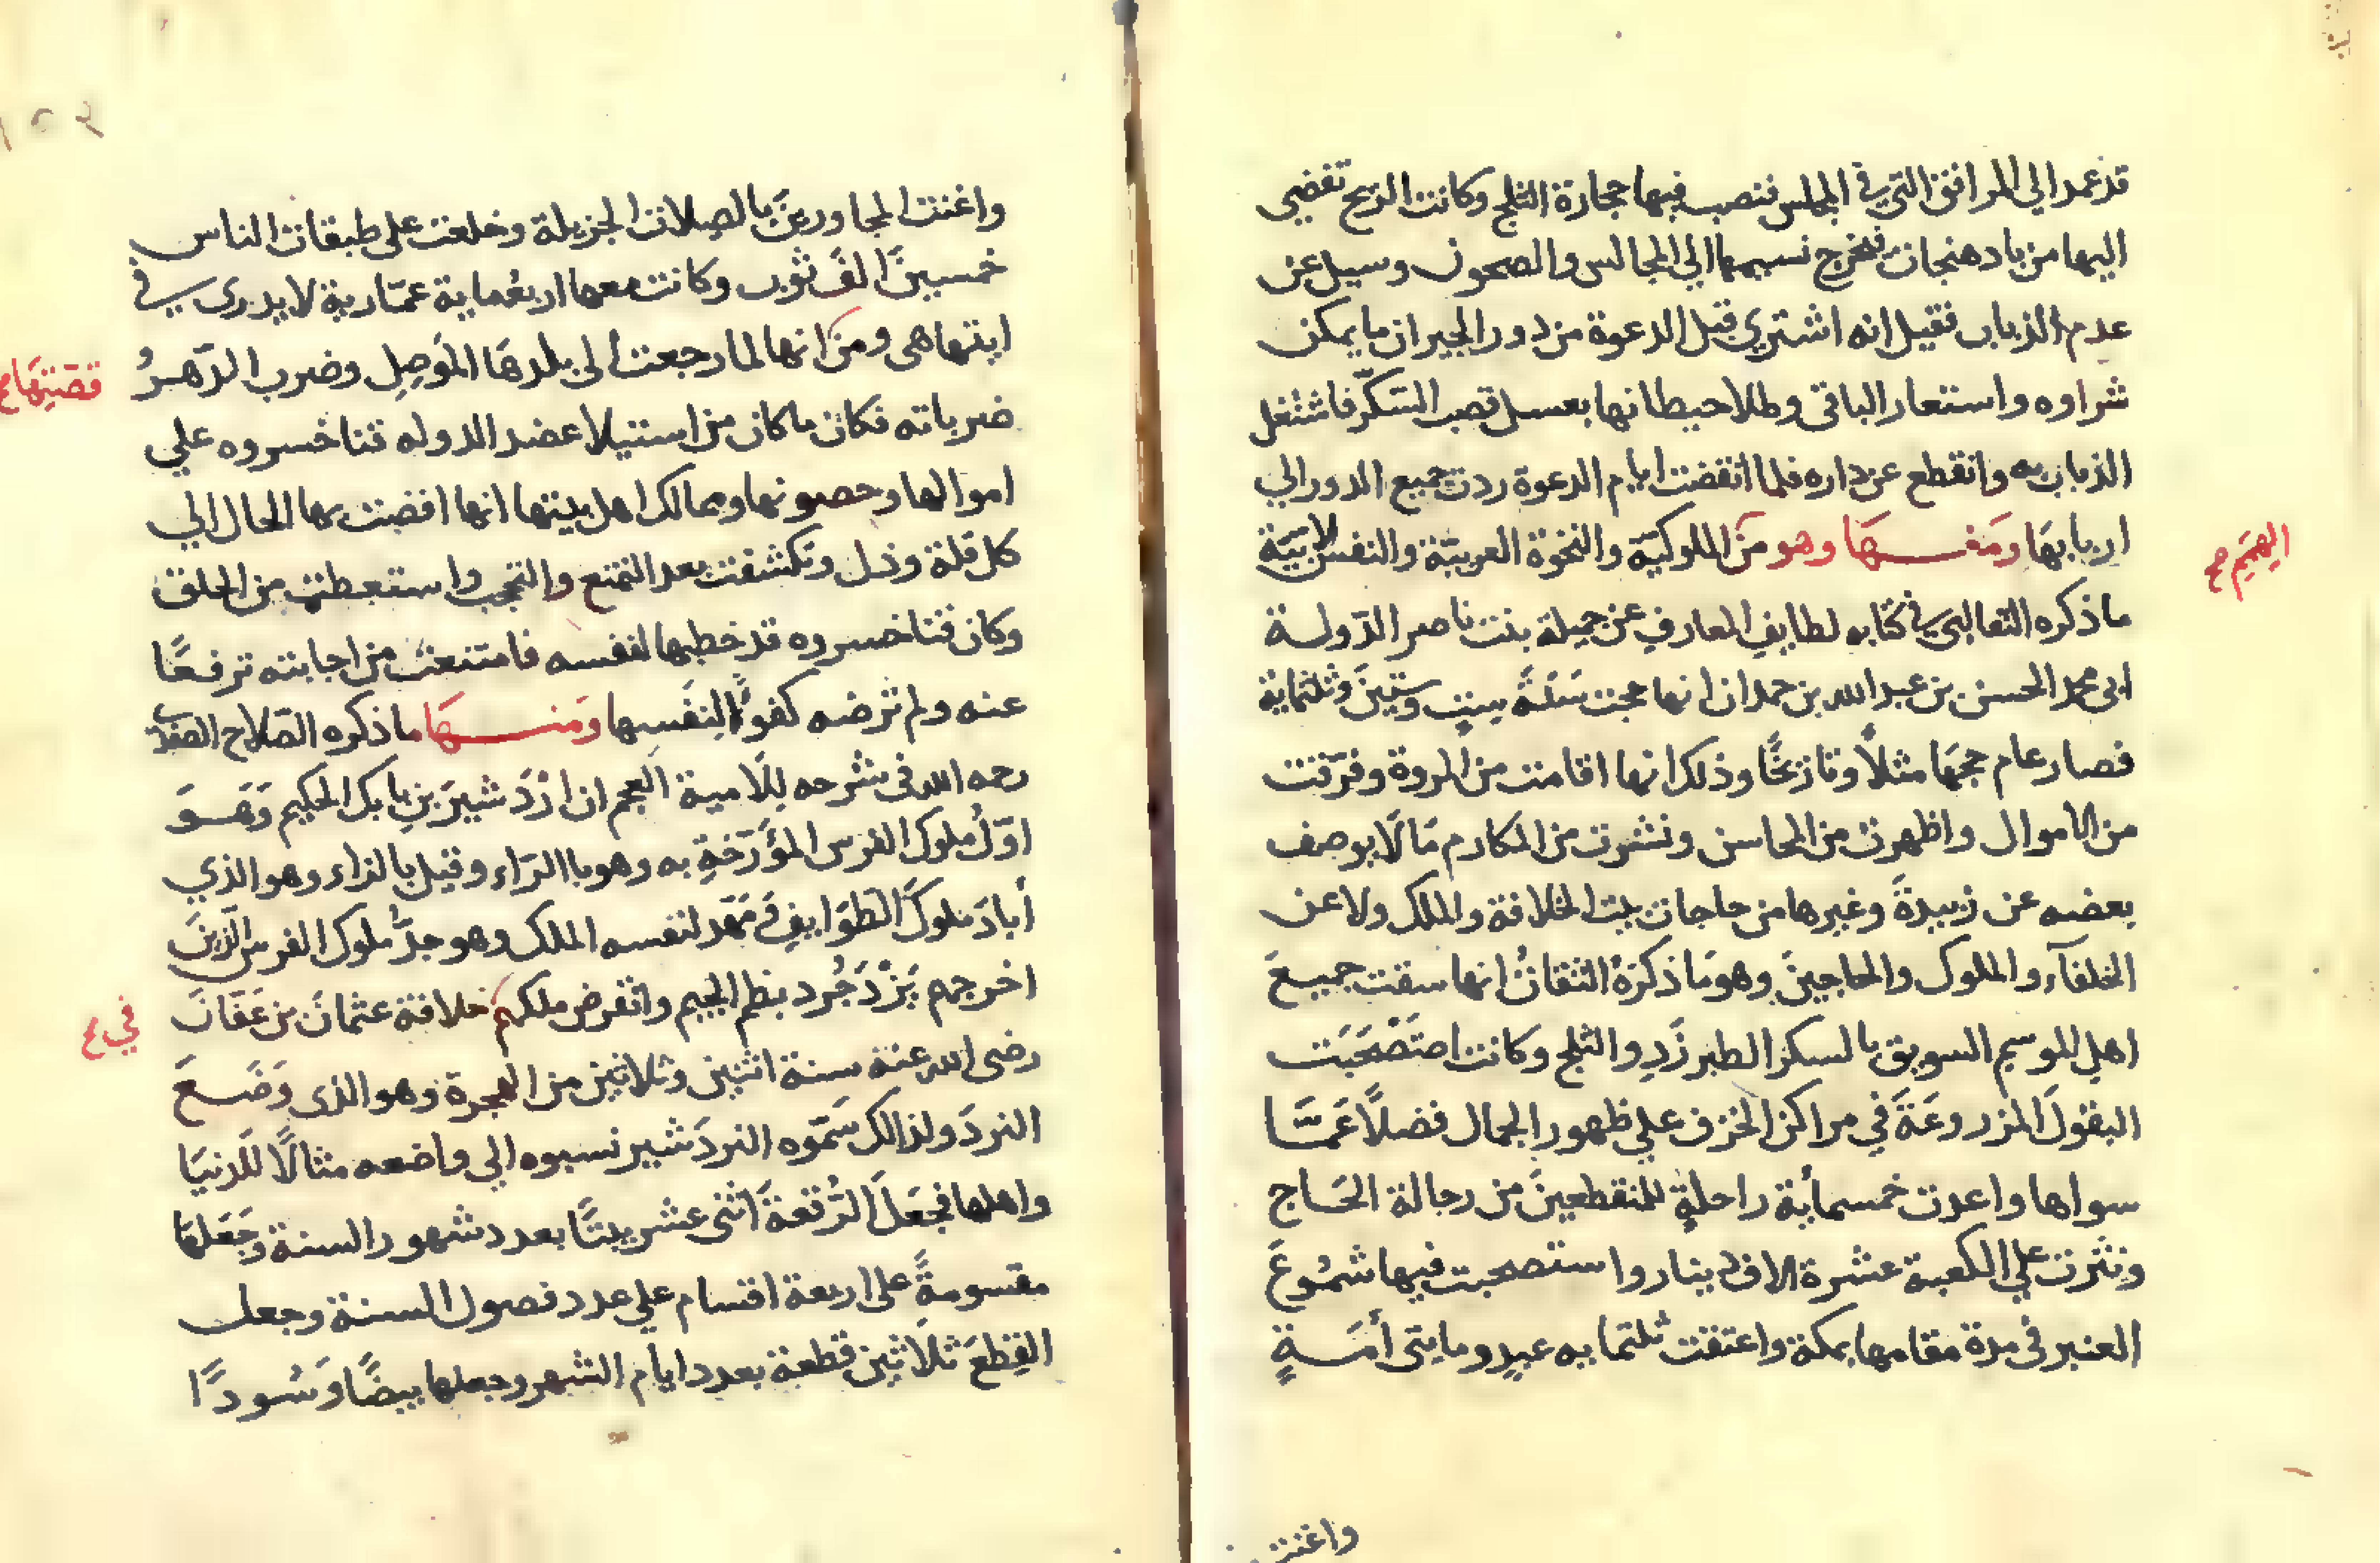 قد عمد الي المرافق التي في المجلس فنصب فيها حجارة الثلج وكانت الريح تفضي
اليها من بادهنجات فيخرج نسيمها الي المجالس والصحون وسيل عن
عدم الذباب فقيل انه اشتري قبل الدعوة من دور الجيران ما يمكن
شراوه واستعار الباقي وطلا حيطانها بعسل قصب السّكّر فاشتغل
الذباب به وانقطع عن داره فلما انقضت ايام الدعوة ردت جميع الدور الي
اربابهَا ومَنـهـَا وهو مَن الملوكيّة والنخوة العربيّة والنفس الابيّة
الهمم صح
ما ذكره الثعالبي في كتابه لطايف المعارف عن جميلة بنت ناصر الدّولة
ابى محمد الحسن بن عبد الله بن حمدان انها حجت سَنَةَ سِتٍ وستِينَ وثلثماية
فصار عام حجهَا مثلاً وتاريخًا وذلك انها اقامت من المروة وفرّقت
من الاموال واظهرت من المحاسن ونشرت من المكارم مَالَا يوصف
بعضه عن زبيدةَ وغيرها من حاجات بيت الخلافة والملك ولا عن
الخلفآء والملوك والحاجينَ وهو مَا ذكرَهُ الثقاتُ انها سقت جميعَ
اهل الموسم السويق بالسكر الطبرزَدِ والثلج وكانت اصتَصْحَبَت
البقولَ المزروعَةَ في مراكن الخزف علي ظهور الجمال فضلاً عَمَّا
سواها واعدت خمسمأية راحلةٍ للمنقطعينَ من رجالة الحَاج
ونثَرت علي الكعبة عشرة الاف دينار واستصحبت فيها شموُعَ
العنبر في مدة مقامها بمكة واعتقت ثلثمايه عبدٍ ومايتى أمَةٍ
واغنت
واغنت المجاورينَ بالصِلات الجزيلة وخلعت على طبقات الناس
خمسينَ الفَ ثوب وكانت معها اربعُماية عمّارية لا يدرى في
ايتها هى ومَن انها لما رجعت الى بلدهَا المَوصِل وضرب الدّهرُ
قصتِهَا صح
ضرباته فكان ما كان من استيلا عضد الدوله فناخسروه علي
اموالها وحصونها وممالك اهل بيتها انها افضت بها الحال الي
كل قلة وذل وتكشفت بعد التمنع والتحجب واستعطت من الخلق
وكان فناخسروه قد خطبها لنفسه فامتنعت من اجابته ترفعًا
عنه ولم ترضه كفوءًا لِنفَسِهَا ومَنـهـَا ما ذكره الصّلاح الصفدي
رحمه الله في شرحه لِلَامية العجم ان ازْدَشيرَ بنِ بابك الحكيم وَهَوَ
اوّلُ ملوك الفرس المؤَرّخةِ به وهو باالرّاء وقيل بالزاء وهو الذي
أبادَ ملوكَ الطوَايفِ وَمَهّد لنفسه الملك وهو جدُّ ملوك الفرس الّذينَ
اخرجهم يَزْدَجُرد بضم الجيم وانقرض ملكهم خلافة عثمانَ بن عَفّانَ
في صح
رضى الله عنه سنة اثنين وثلاثين من الهجرة وهو الذى وَضَعَ
النردَ ولذالك سَمّوه النردَشير نسبوه الي واضعه مثالاً للدنيَا
واهلها فجعَلَ الرُقعةَ اثنى عشر بيتًا بعدد شهور السنة وَجَعَلهَا
مقسومةً على اربعة اقسام علي عدد فصول السنة وجعل
القِطعَ ثلاثين قطعة بعدد ايام الشهر وجعلها بيضًا وَسُودًا